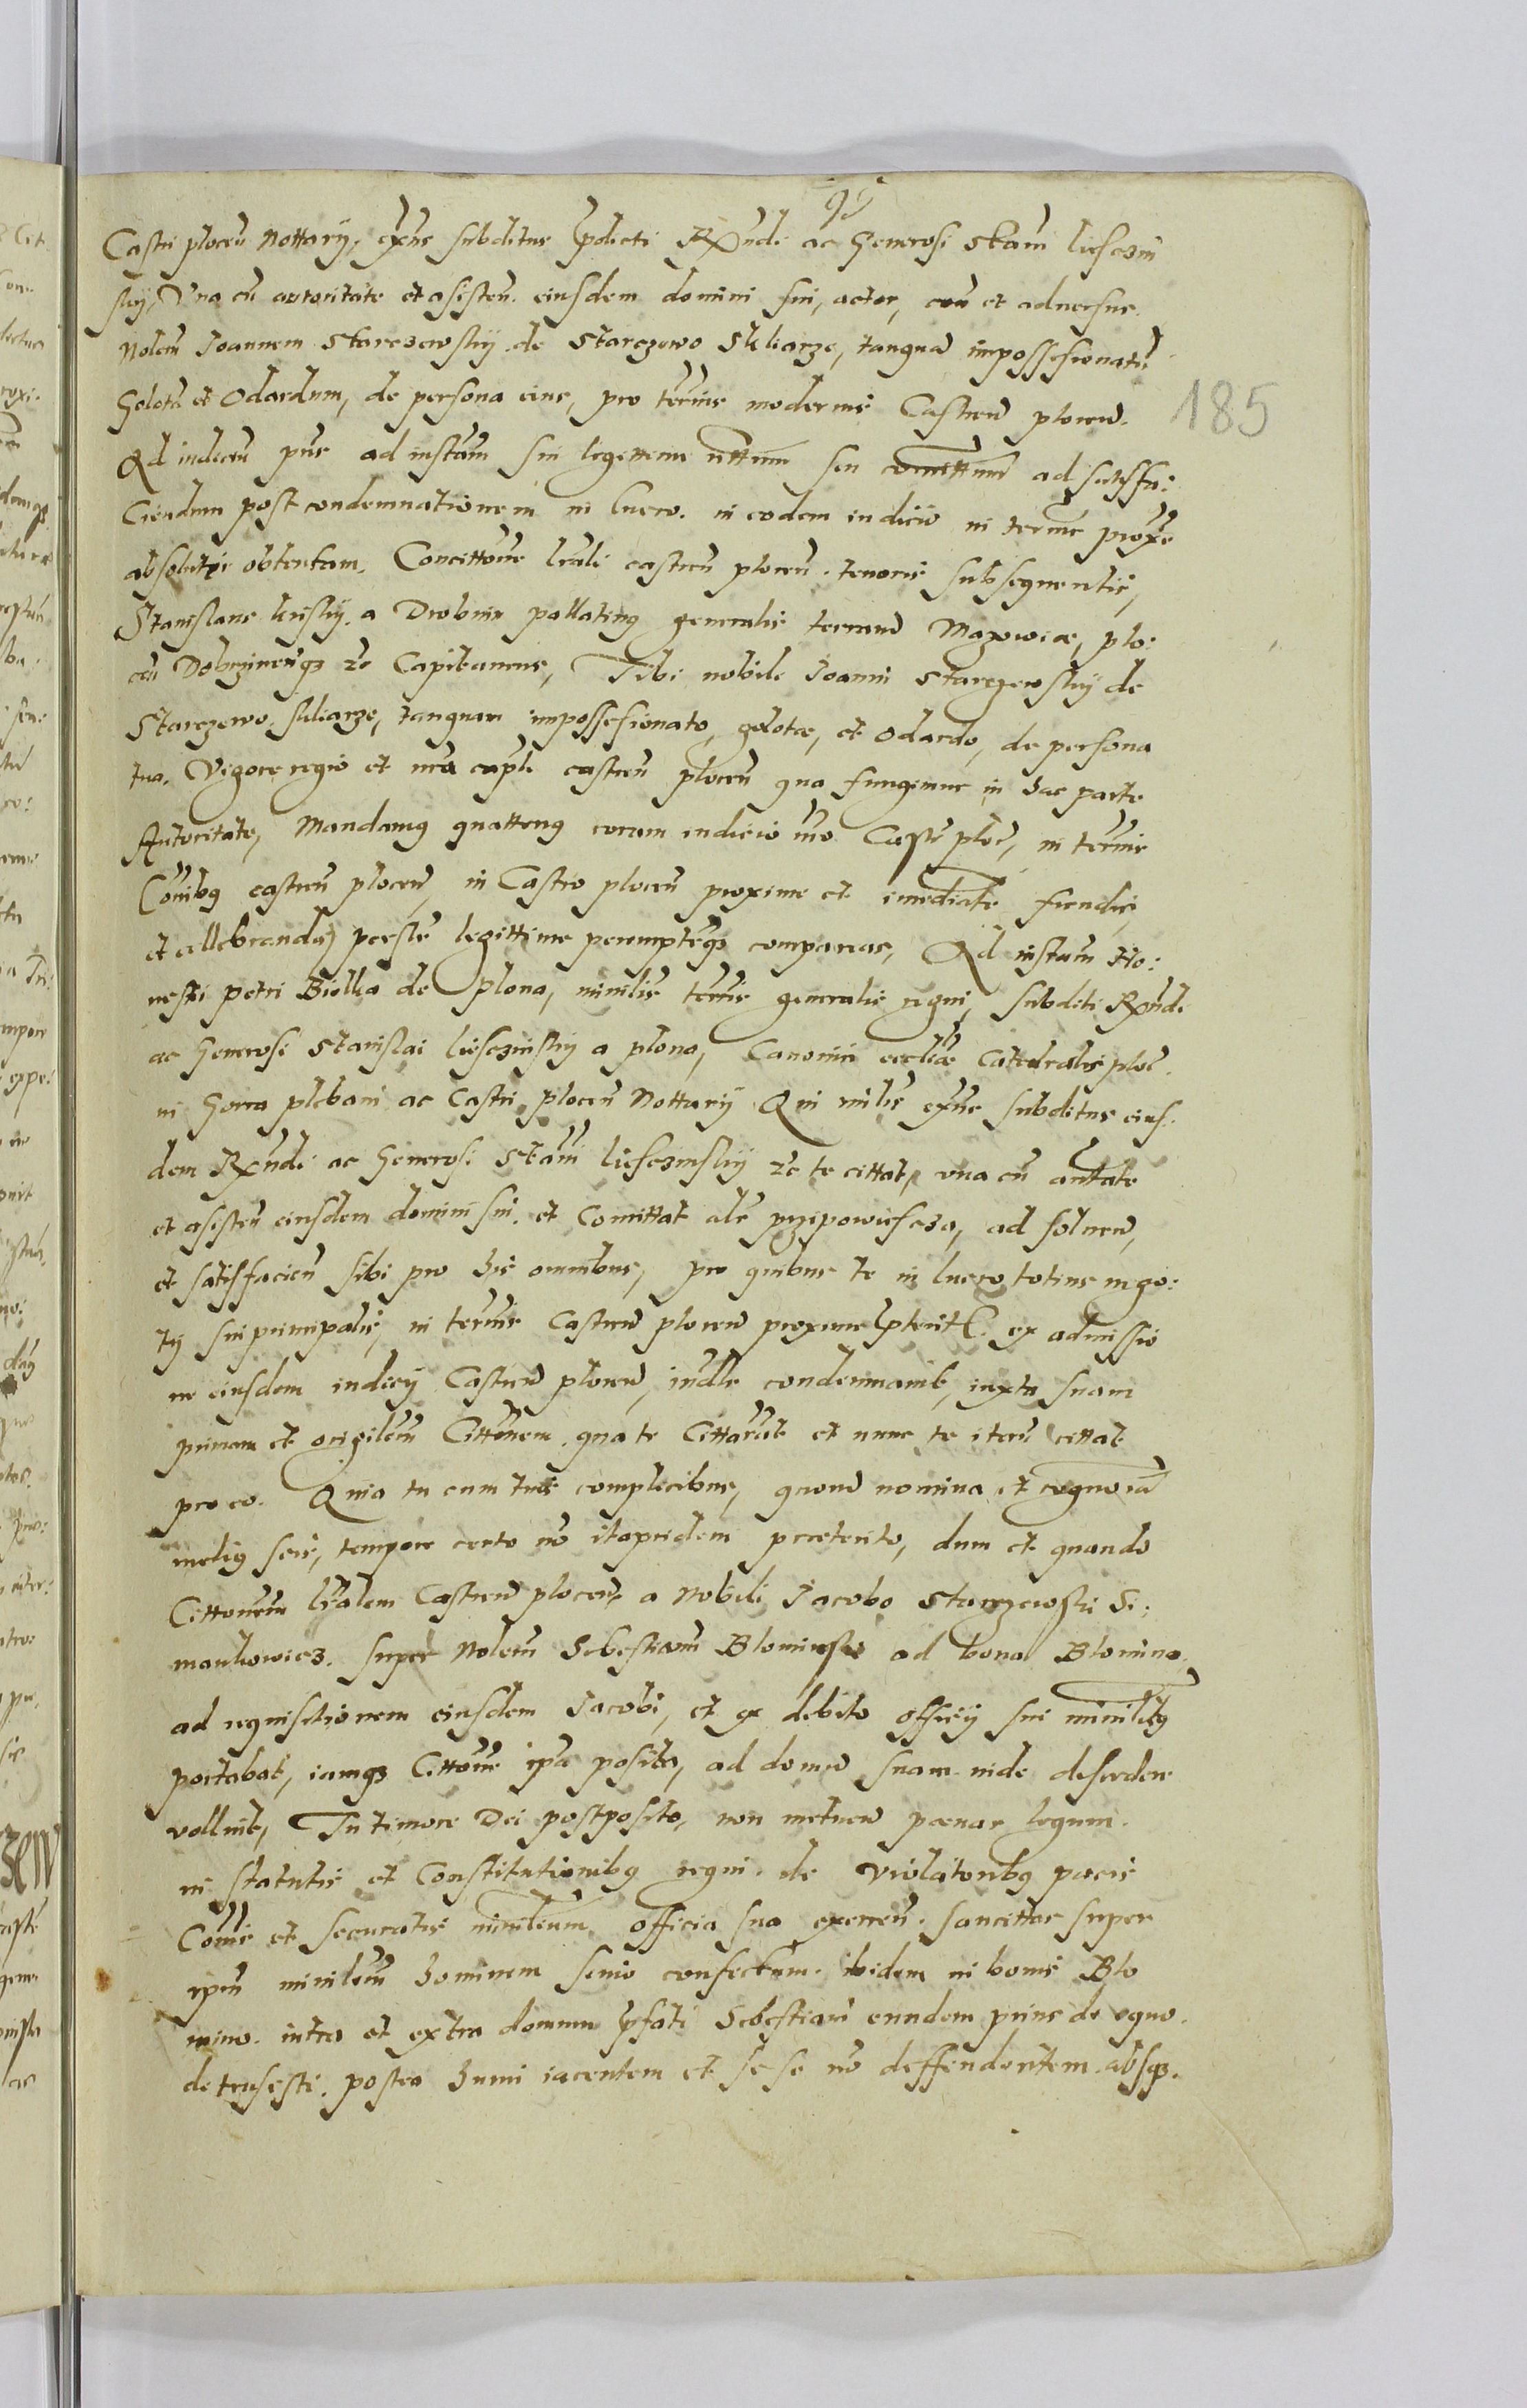 Castri plocen Nottarij, exns subditus pdicti Rxndi ac Generosi Stani Liesczin
skij, Vna cu autoritate et asisten. eiusdem domini sui, actor, con et aduersus
Nolem Joannem Starczewskij de Starczewo Skliarze, tanquam impossesionatu
Golota et Odardum, de persona eius, pro termis modernis Castren plocen.
Ad iudicm pns ad instam sui legittime ad satisfa:
Ciendum post condemnationem in lucro. in eodem iudicio in termis proxe
absolutis obtentam. Concittone lrali castren plocen. tenoris subsequentis,
Stanislaus Kriskij. a Drobnin pallatinus generalis terrarum Mazowiæ, plo:
cen Dobrzinenqz zc Capitaneus, Tibi nobile Joanni Starczewskij de
Starczewo. skliarze, tanquam impossesionato, golotæ, et Odardo, de persona
tua. Vigore regio et nra caple castren plocen qua fungimur in hac parte
Autoritate, Mandamus quattenus coram iudicio nro Castr ploc, in termis
Conibus castren plocen, in Castro plocen proxime et imediate fiendis,
et cellebrandis perslr legittime perempteqz compareas, Ad instam Ho:
nesti petri Biolka de plona, minilis terris generalis regni, subditi Rxndi
ac Generosi Stanislai Liesczinskij a plona, Canonici eccliæ Cattedralis ploc.
in Gora plebani ac Castri plocen Nottarij Qui milis exns subditus eius.
dem Rxndi ac Generosi Stani Liesczinskij zc te cittat, vna cu auttate
et asisten eiusdem domini sui. et Comittat als przipowiescza, ad soluen,
et satisfacien sibi pro his omnibus, pro quibus te in lucro totius nego:
tij sui principalis, in termis Castren plocen proxime pterit. ex admissio
ne eiusdem iudicij Castren plocen, iudlr condemnauit, iuxta suam
primam et origilem Cittonem. qua te Cittarat et nunc te iteru cittat
pro eo. Quia tu cum tuis complicibus, quorum nomina et cognoia
melius scis, tempore certo no itapridem præterito, dum et quando
Cittonem lralem Castren plocen, a Nobili Jacobo Starczewski Si:
mankowicz. super Nolem Sebestianm Blominski ad bona Blomino.
ad requisitionem eiusdem Jacobi, et ex debito officij sui minilitus
portabat, iamqz Cittone ipa posita, ad domum suam inde descedere
volluit, Tu timore Dei postposito, non metuen pænas legum.
in statutis et Constitutionibus regni. de violatoribus pacis
Cois et securatis minilium officia sua exercen. sancittas super
ipm minilem hominem senio confectum. ibidem in bonis Blo
mino. intra et extra domum pfati Sebestiani eundem prius de equo.
detrusisti. postea humi iacentem et sese no deffendentem. absqz.
185